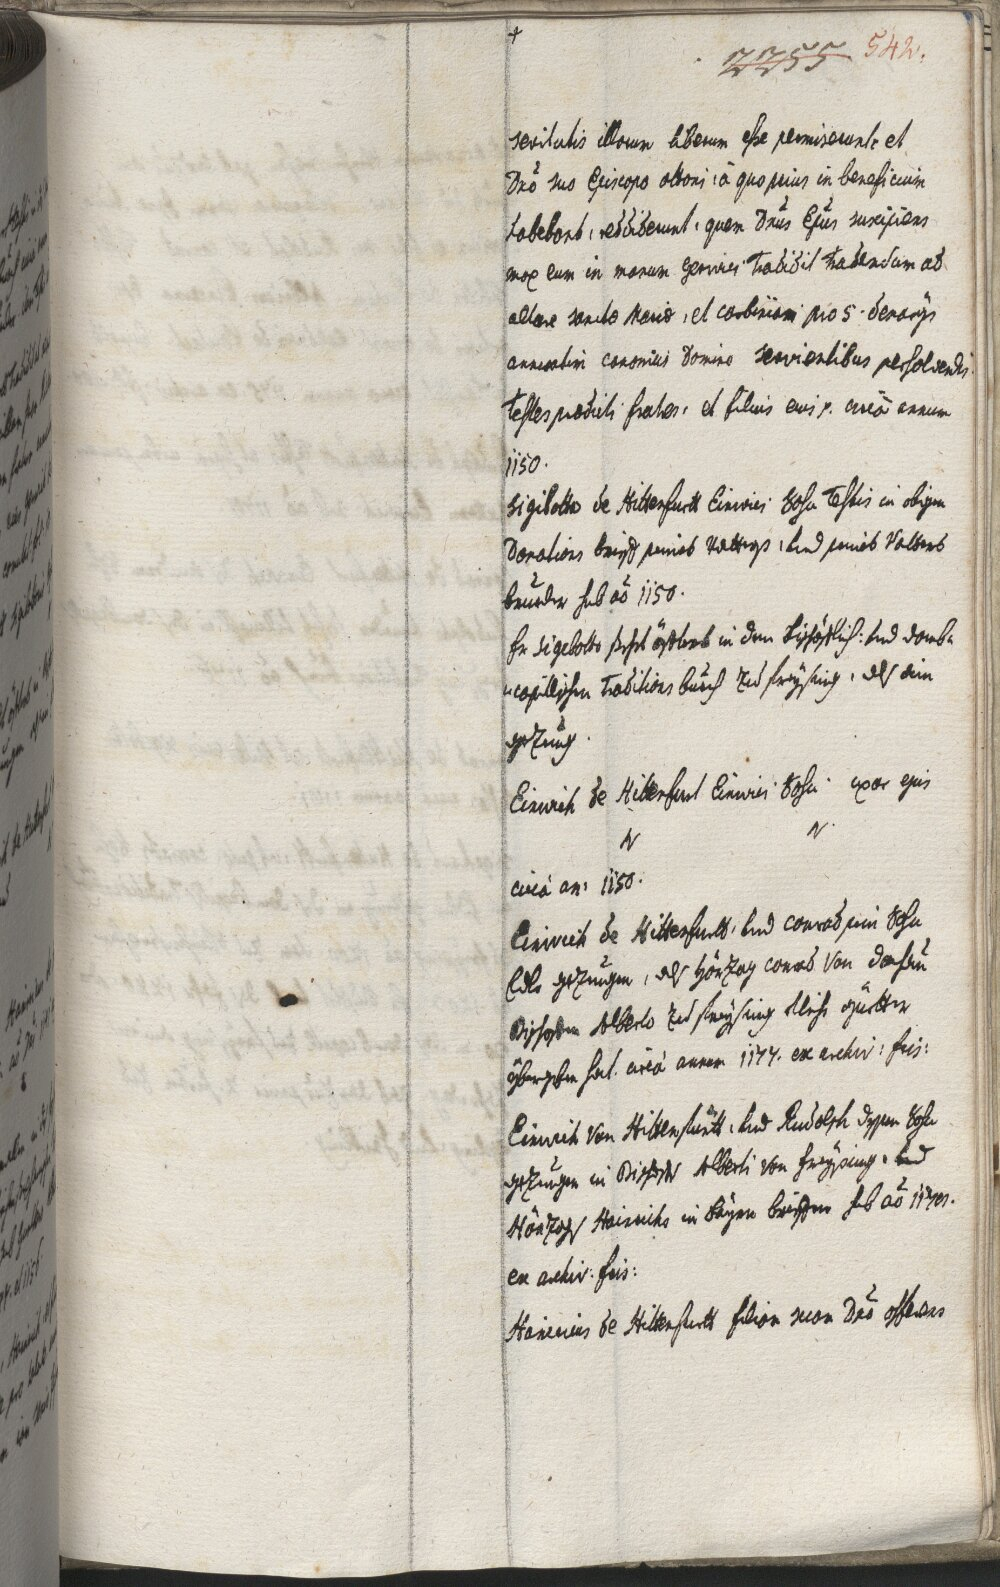 2255 542.
servitutis illorum liberum esse permiserunt, et
Dno suo Episcopo ottoni, à quo prius in beneficium
habebant, reddiderunt, quem Dnus Ejus suscipiens
mox eum in manum Genvici tradidit tradendum ad
altare sanctæ Mariæ, et corbiniani pro 5. denarys
annuatim canonicis Domino servientibus persolvendis.
Testes prædicti fratres, et filius eius p. circà annum
1150.
Sigibotto de Hittenfurtt Einvici Sohn Testis in obigen
Donations brieff und Volkers
brueder sub aõ 1150.
Er Sigebotto steht öffters in dem Bischöfflich: und Domb=
=capitlischen Traditions buech zu Freysing, als ein
gezeug.
Einwich de Hittenfurt Einvici Sohn. uxor ejus
N N.
circà an: 1150.
Einwich de Hittenfurtt, und Conrad sein Sohn
Edle gezeugen, als Hörzog Conrad von Dachau
Bischoffen Alberto zu Freysing etliche güetter
übergeben hat. circà annum 1177. ex archiv: fris:
Einwich von Hittenfurtt, und Rudolph dessen Sohn
gezeugen in Bischoff Alberti von Freysing, und
Hörzog Heinrichs in Bayrn brieffen sub aõ
ex archiv: fris:
Hainricus de Hittenfurtt filiam suam Dno offerens